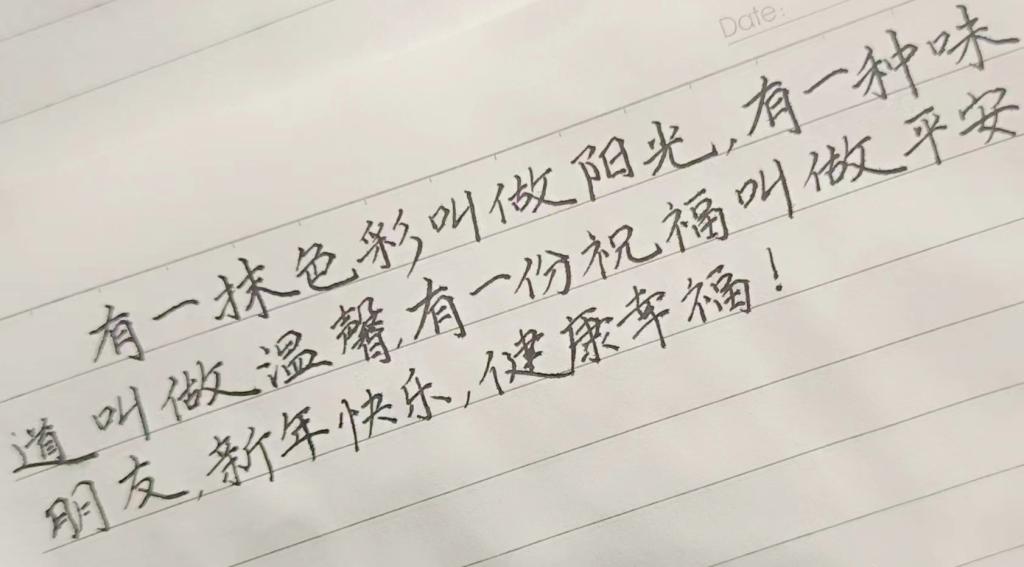 Date:
有一抹色彩叫做阳光,有一种味
道叫做温馨,有一份祝福叫做平安
朋友,新年快乐,健康幸福!